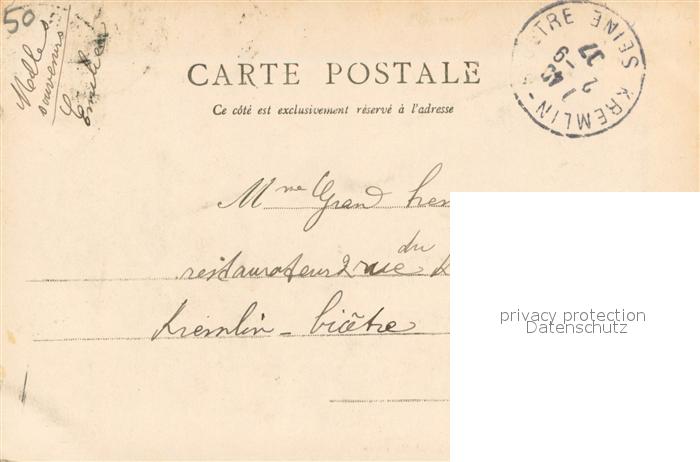 50
souvenirs
CARTE POSTALE
Ce côté est exclusivement réservé à l'adresse
KREMLIN-BICÊTRE SEINE
Mme Grand
restaurateur 2 rue du
Kremlin - bicêtre
privacy protection
Datenschutz